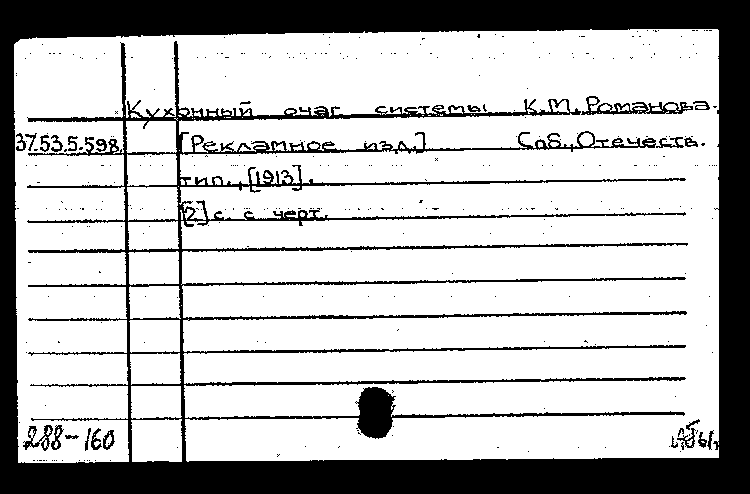 Кухонный очаг системы К.М.Романова.
37.53.5.598. [Рекламное изд.] Спб.,Отечеств.
тип.,[1913].
[2] с. с черт.
288-160